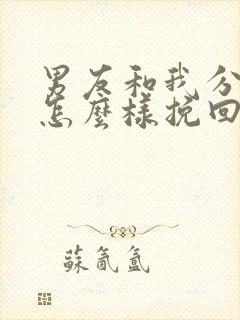 男友和我分
怎麼樣挽回
蘇氤氳